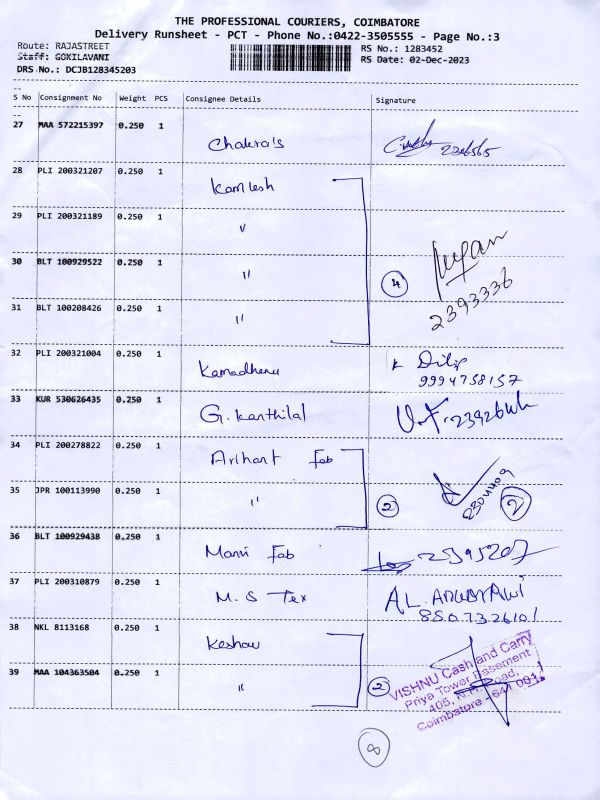 THE PROFESSIONAL COURIERS, COIMBATORE
Delivery Runsheet - PCT - Phone No.:0422-3505555 - Page No.:3
Route: RAJASTREET
Staff: GOKILAVANI
DRS No.: DCJB128345203
RS No.: 1283452
RS Date: 02-Dec-2023
S No Consignment No Weight PCS Consignee Details Signature
27 MAA 572215397 0.250 1
Chakra's 2306565
28 PLI 200321207 0.250 1
Kamlesh
29 PLI 200321189 0.250 1
"
30 BLT 100929522 0.250 1
" 4
2393336
31 BLT 100208426 0.250 1
"
32 PLI 200321004 0.250 1
Kamadhenu Dilip
9994758157
33 KUR 530626435 0.250 1
G. Kanthilal
34 PLI 200278822 0.250 1
Arihant Fab
35 JPR 100113990 0.250 1
" 2 2
36 BLT 100929438 0.250 1
Mani Fab 2395207
37 PLI 200310879 0.250 1
M.S Tex AL
8807326101
38 NKL 8113168 0.250 1
Keshav
39 MAA 104363504 0.250 1
" 2
VISHNU Cash and Carry
Priya Tower Basement
405, N.H. Road,
Coimbatore - 641 001.
8